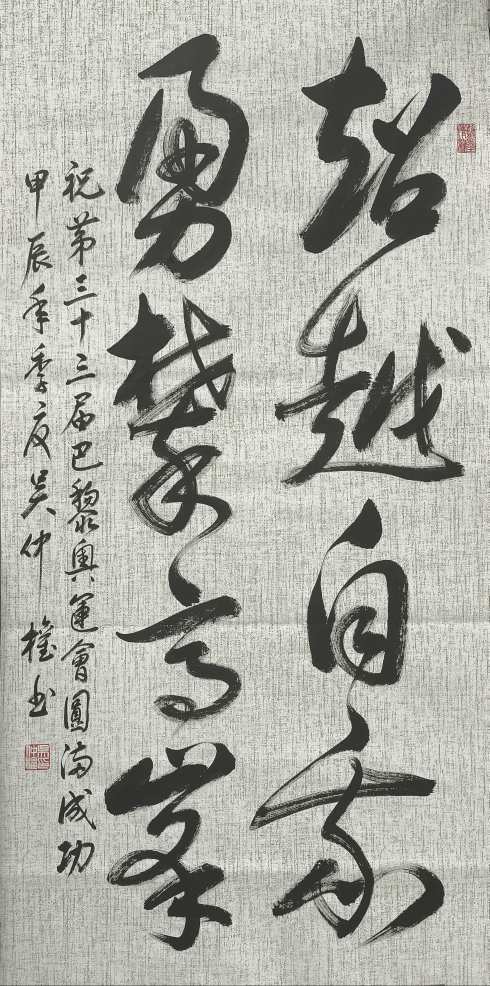 超越自我
勇攀高峯
祝第三十三届巴黎奥運會圓满成功
甲辰年季夏吴仲權书